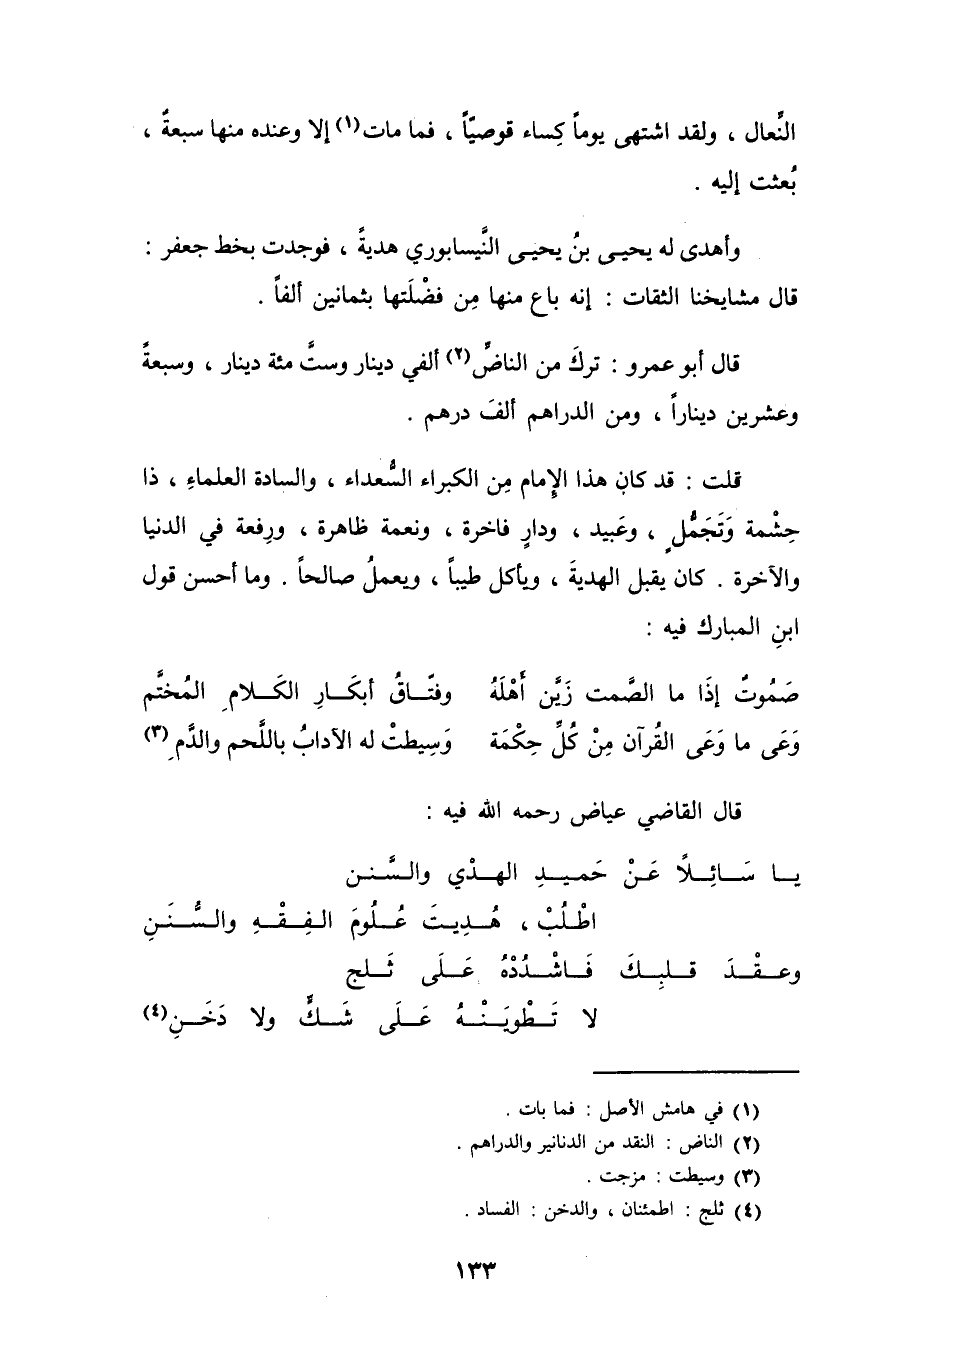 النَّعال ، ولقد اشتهى يوماً كِساء قوصيّاً ، فما مات(١) إلا وعنده منها سبعةٌ ،
بُعثت إليه .
وأهدى له يحيى بنُ يحيى النَّيسابوري هديةً ، فوجدت بخط جعفر :
قال مشايخنا الثقات : إنه باع منها مِن فضْلَتها بثمانين ألفاً .
قال أبو عمرو : تركَ من الناضِّ(٢) ألفي دينار وستَّ مئة دينار ، وسبعةً
وعشرين ديناراً ، ومن الدراهم ألفَ درهم .
قلت : قد كان هذا الإِمام مِن الكبراء السُّعداء ، والسادة العلماءِ ، ذا
حِشْمة وَتَجَمُّلٍ ، وعَبيد ، ودارٍ فاخرة ، ونعمة ظاهرة ، ورِفعة في الدنيا
والآخرة . كان يقبل الهديةَ ، ويأكل طيباً ، ويعملُ صالحاً . وما أحسن قول
ابنِ المبارك فيه :
صَمُوتٌ إذَا ما الصَّمت زَيَّن أَهْلَهُ وفتّاقُ أبكَارِ الكَلامِ المُختَّم
وَعَى ما وَعَى القُرآن مِنْ كُلِّ حِكْمَة وَسِيطتْ له الآدابُ باللَّحم والدَّمِ(٣)
قال القاضي عياض رحمه الله فيه :
يا سَائِلاً عَنْ حَميدِ الهدْي والسَّنن
اطْلُبْ ، هُدِيتَ عُلُومَ الفِقْهِ والسُّنَنِ
وعقْدَ قلبِكَ فَاشْدُدْهُ عَلَى ثَلج
لا تَطْويَنْهُ عَلَى شَكٍّ ولا دَخَنِ(٤)
(١) في هامش الأصل : فما بات .
(٢) الناض : النقد من الدنانير والدراهم .
(٣) وسيطت : مزجت .
(٤) ثلج : اطمئنان ، والدخن : الفساد .
١٣٣